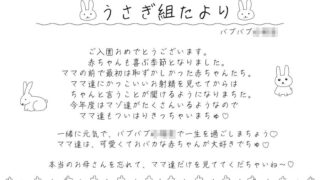 うさぎ組たより
バブバブ
ご入園おめでとうございます。
赤ちゃんも喜ぶ季節となりました。
ママの前で最初は恥ずかしかった赤ちゃんたち。
ママ達にかっこいいお射精を見せてからは
ちゃんと言うことが聞けるようになりました。
今年度はマゾ達がたくさんいるようなので
ママ達もついはりきっちゃいまちゅ♡
一緒に元気で、バブバブ で一生を過ごしまちょう♡
ママ達は、可愛くておバカな赤ちゃんが大好きでちゅ♡
本当のお母さんを忘れて、ママ達だけを見ててくだちゃいね〜♡